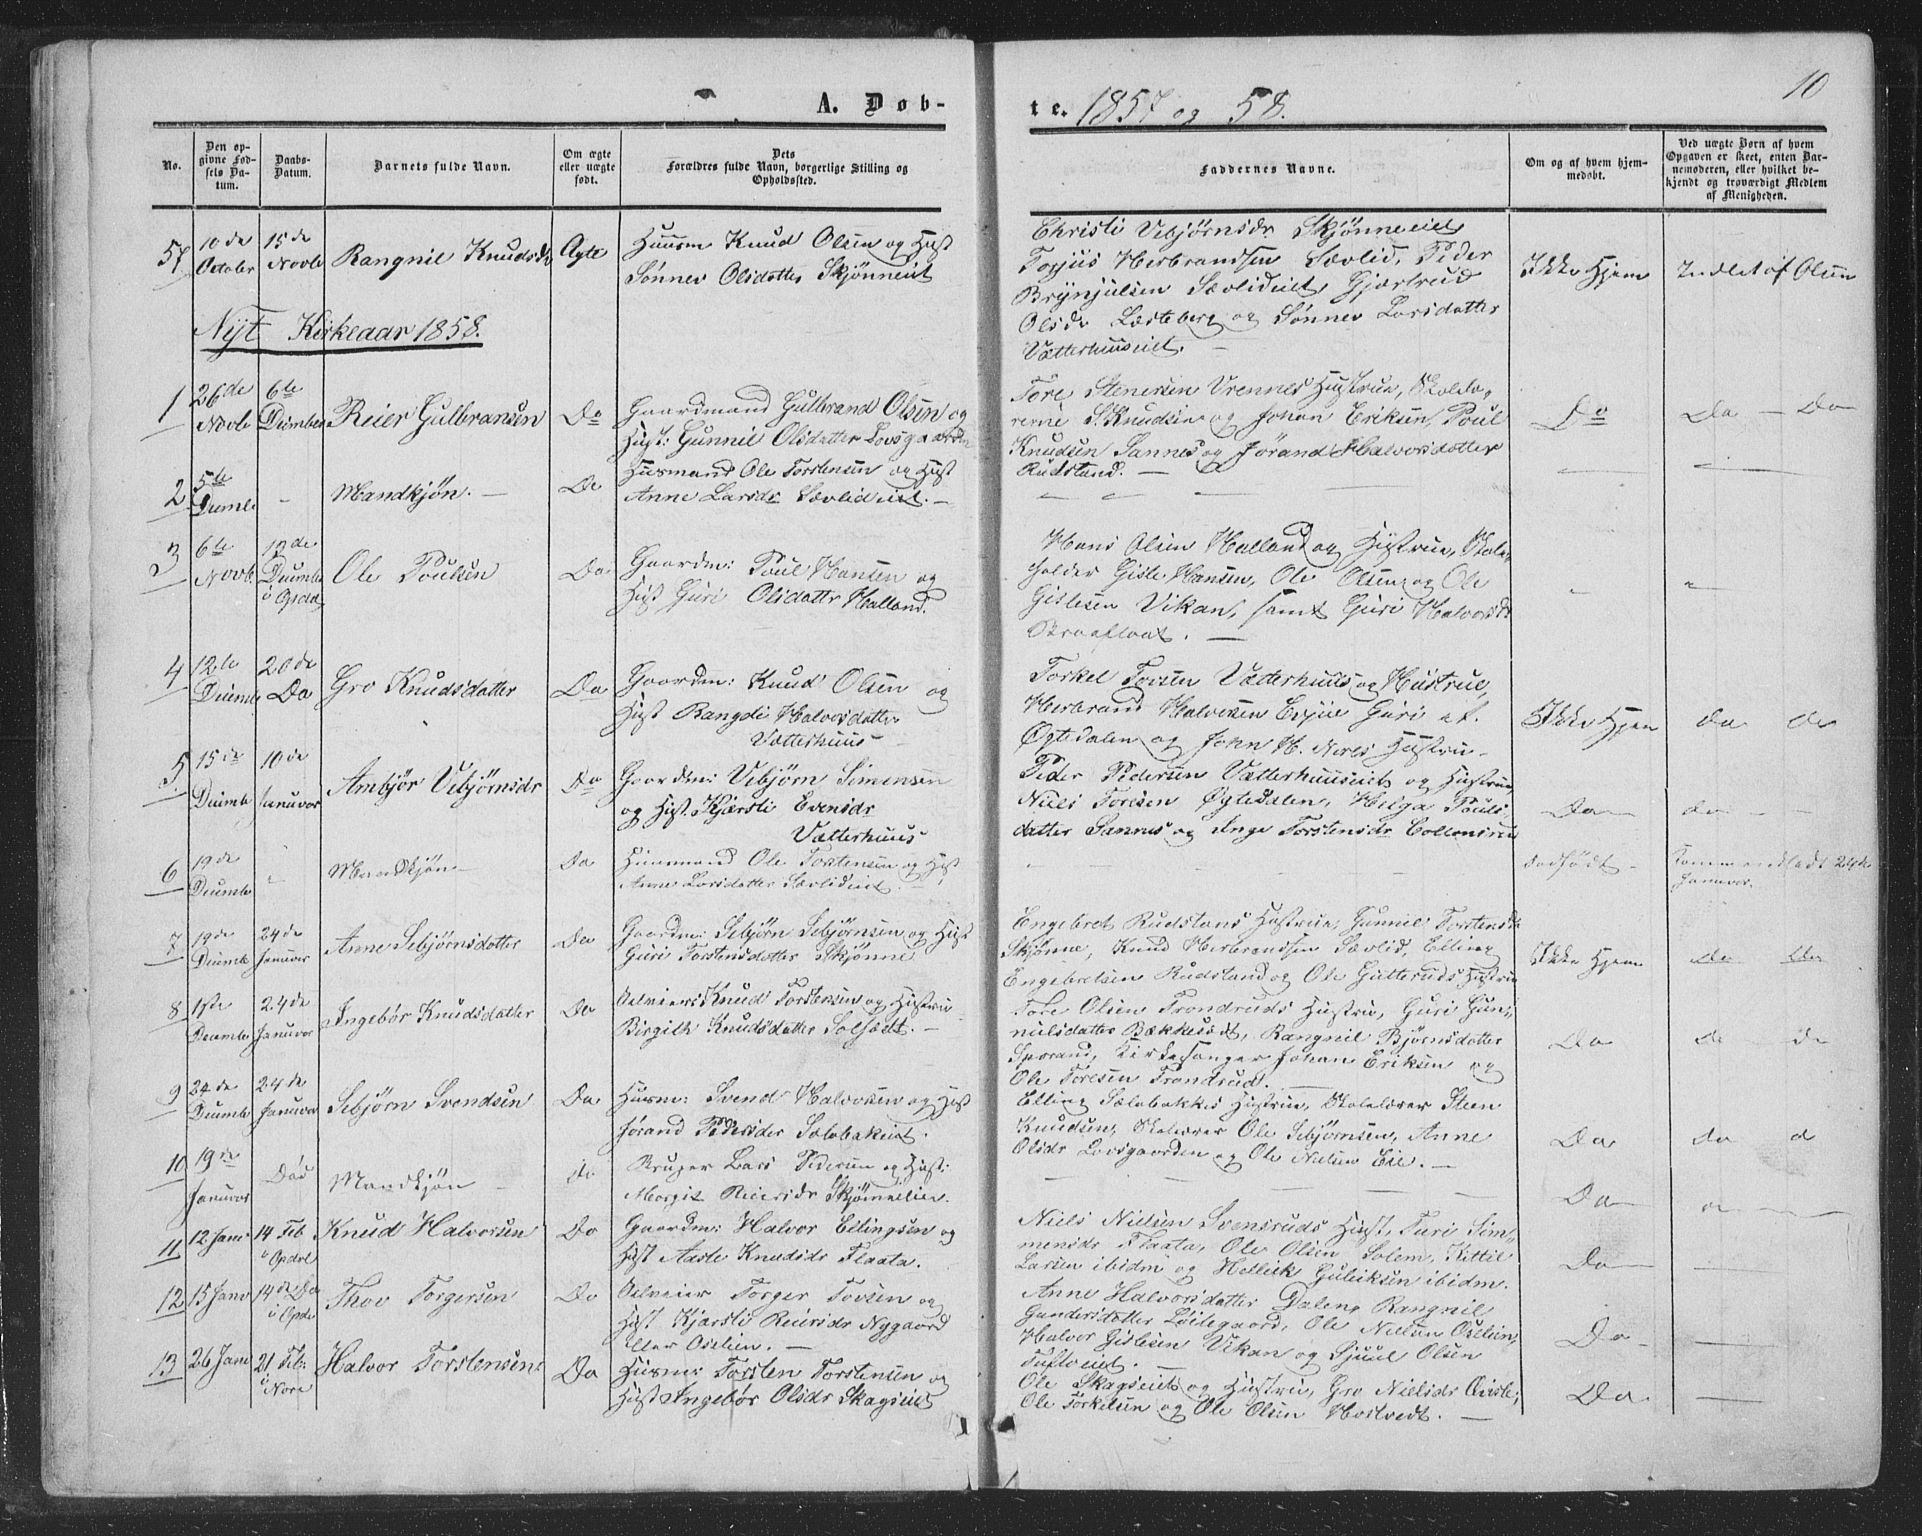 10
A. Døb-
te. 1857 og 58.
No.
Den op-
givne Fød-
sels Da-
tum.
Daabs-
Datum.
Barnets fulde Navn.
Om ægte
eller uægte
født.
Dets
Forældres fulde Navn, borgerlige Stilling og
Opholdssted.
Faddernes Navne.
Om og af hvem hjem-
medøbt.
Ved uægte Børn af hvem
Opgaven er skeet, enten Bar-
nemoderen, eller hvilket be-
kjendt og troværdigt Medlem
af Menigheden.
57 10de October 15de Novbr Rangnil Knudsdr Ægte
Huusm Knud Olsen og Hust
Sønnev Olsdatter Skjønneiet
Christi Vebjørnsdr Skjønneeiet
Torjus Herbrandsen Sævlid, Peder
Brynjulsen Sævlideiet, Gjertrud
Olsdr Læsteberg og Sønnev Larsdatter
Vætterhuuseiet. —
Ikke Hjem
Indlet af Olsen
Nyt Kirkeaar 1858.
1 26de Novb 6te Reier Gulbransen Do
Gaardmand Gulbrand Olsen og
Hust: Gunnil Olsdatter Lovsgaarden
Tore Stenersen Vrennes Hustrue, Skolelæ-
rerne S. Knudsen og Johan Eriksen, Poul
Knudsen Sannes og Jørand Halvorsdatter
Rudstand. —
Do
Da — Do
2 5te - Mandkjøn. — Do
Husmand Ole Torstensen og Hust
Anne Larsdr Sævlideiet. —
3 6te Novb. 13de i Opdal Ole Poulsen Do
Gaardm: Poul Hansen og
Hust Guri Olsdattr Halland.
Hans Olsen Halland og Hustrue, Skole-
holder Gisle Hansen, Ole Olsen og Ole
Gislesen Vikan, samt Guri Halvorsdr
4 12te 20de Do Gro Knudsdatter Do
Gaardm: Knud Olsen og
Hust Rangdi Halvorsdatter
Vætterhuus
Torkel Tovsen Vætterhuus og Hustrue,
Herbrand Halvorsen Guri
Øgtedalen og John H. Nores Hustru —
Ikke Hjem
do do
5 15de 10de Januar Ambjør Vebjørnsdr Do
Gaardm: Vebjørn Simensen
og Hust. Kjersti Evensdr
Vætterhuus
Peder Pedersen Vætterhuuseiet og Hustrue
Niels Toresen Øgtedalen, Helga Pouls-
datter Sannes og Inge Torstensdr
Do —
do — —
6 19de - Mandkjøn — Do
Huusmand Ole Torstensen og Hust
Anne Larsdatter Sævlideiet. —
dødfødt —
Januar.
7 19de 24de Januar Anne Sebjørnsdatter Do
Gaardm: Sebjørn Sebjørnsen og Hust
Guri Torstensdatter Skjønne
Engebret Rudstans Hustrue, Gunnil Torstensdr
Skjønne, Knud Herbrandsen Sævlid, Elling
Engebretsen Rudstand og Ole Gutteruds Hustrue
Ikke Hjem
do do
8 1ste 24de Januar Ingebør Knudsdatter Do
Selveier Knud Torstensen og Hustru
Birgith Knudsdatter
Tore Olsen Trondruds Hustru, Guri Gun-
nulsdatter Rangnil Bjørnsdatter
Sporand, Kirkesanger Johan Eriksen og
Ole Toresen Trondrud. —
Do
do do
9 24de 24de Januar Sebjørn Svendsen Do
Husm: Svend Halvorsen og Hust
Jørand Pedersdr
Elling Hustrue, Skolelærer Steen
Knudsen, Skolelærer Ole Sebjørnsen, Anne
Olsdr Lovsgaarden og Ole Nielsen Eie. —
Do
do
10 19de Januar Død Mandkjøn — do
Bruger Lars Pedersen og Hust:
Margit Reiersdr Skjønnelien.
Do —
11 12 Janr 14 Feb i Opdal Knud Halvorsen Do
Gaardm: Halvor Ellingsen og
Hust Aaste Knudsdr Flaata.
Niels Nielsen Svensruds Hust, Turi Sim-
mensdr Flaata, Ole Olsen Solem, Kittil
Larsen ibidm og Hellik Gulliksen ibidm.
Do —
12 15 Janr 14de Do i Opdl Thov Torgersen Do
Selveier Torger Tovsen og
Hust Kjersti Reiersdr Nygaard
eller Oselien. —
Anne Halvorsdatter Daleng Rangnil
Gundersdatter Ole Nielsen Oselien,
Halvor Gislesen Vikan og Sjuul Olsen
Tufteiet. —
Do —
13 26 Janr 21 Feb: i Nore Halvor Torstensen Do
Husm: Torsten Torstensen og
Hust Ingebør Olsdr Skagseiet
Ole Skagseiet og Hustru, Gro Nielsdr
Ole Torkelsen og Ole Olsen Hostvedt. —
Do —